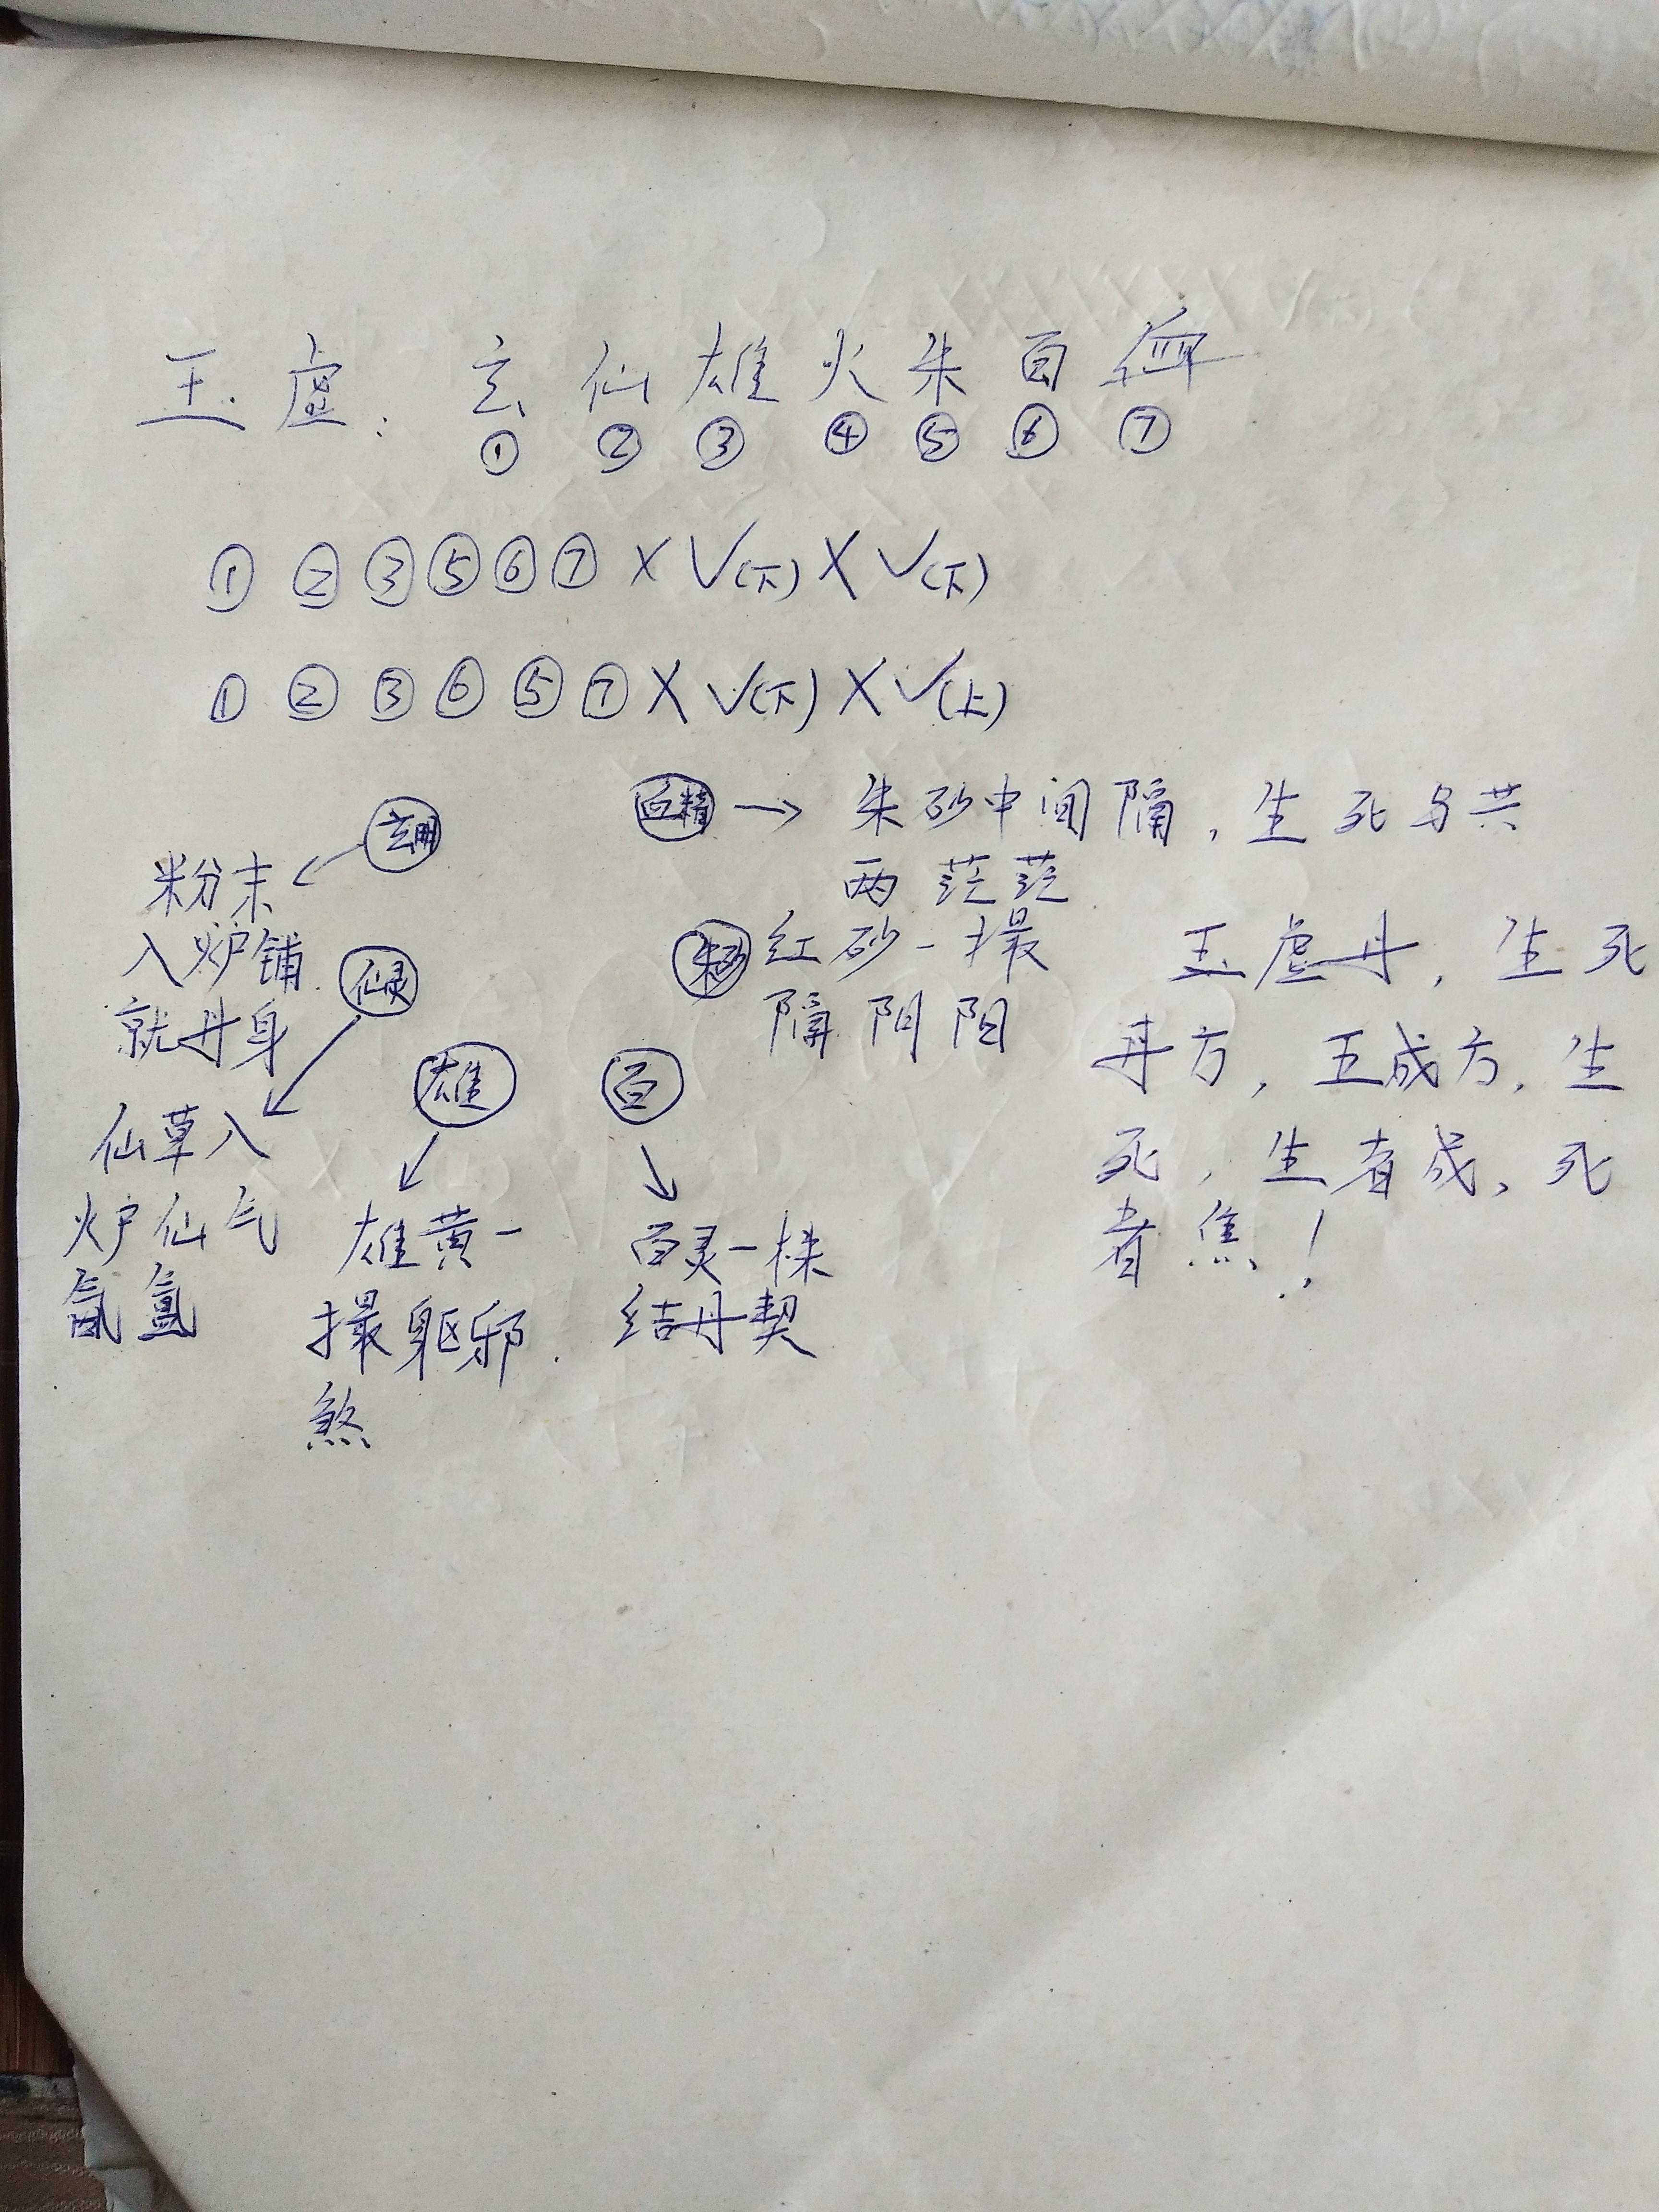 玉虚：玄仙雄火朱百
① ② ③ ④ ⑤ ⑥ ⑦
① ② ③ ⑤ ⑥ ⑦ X √(下) X √(下)
① ② ③ ⑥ ⑤ ⑦ X √(下) X √(上)
粉末
入炉铺
就丹身
仙灵
仙草入
炉仙气
氤氲
雄
雄黄一
撮躯邪.
煞
百
百灵一株
结丹契
→ 朱砂中间隔，生死与共
两茫茫
朱砂
红砂一撮
隔阴阳
玉虚丹，生死
丹方，五成方，生
死，生者成，死
者焦！